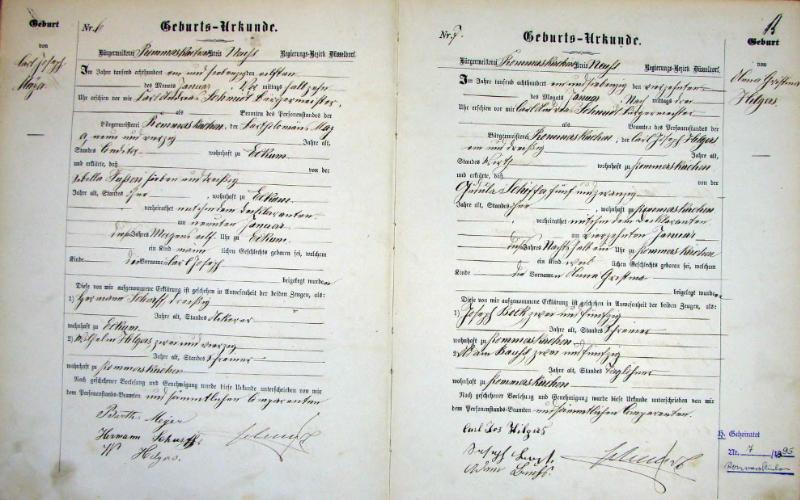 Geburt
von
Carl Joseph
Nr. 6
Geburts-Urkunde.
Bürgermeisterei Rommerskirchen Kreis Neuß Regierungs-Bezirk Düsseldorf.
Im Jahre tausend achthundert ein und siebenzig den elften
des Monats Januar, Vor mittags halb zehn
Uhr erschien vor mir Carl Schmidt Bürgermeister,
als Beamten des Personenstandes der
Bürgermeisterei Rommerskirchen, der Bartholomäus
neun und vierzig Jahre alt,
Standes wohnhaft zu Eckum
und erklärte, daß von der
sieben und dreißig
Jahre alt, Standes ohne, wohnhaft zu Eckum,
verheirathet mit dem Declaranten
am neunten Januar
dieses Jahres Morgens elf Uhr zu Eckum
ein Kind männlichen Geschlechts geboren sei, welchem
Kinde der Vorname Carl Joseph
beigelegt wurde
Diese von mir aufgenommene Erklärung ist geschehen in Anwesenheit der beiden Zeugen, als:
1) Hermann dreißig
Jahre alt, Standes Ackerer
wohnhaft zu Eckum
2) Wilhelm Hilgers zwei und vierzig
Jahre alt, Standes Schreiner
wohnhaft zu Rommerskirchen
Nach geschehener Vorlesung und Genehmigung wurde diese Urkunde unterschrieben von mir
dem Personenstands-Beamten und sämmtlichen Comparenten
Hermann
W Hilgers.
Nr. 7.
Geburts-Urkunde.
Bürgermeisterei Rommerskirchen Kreis Neuß Regierungs-Bezirk Düsseldorf.
Im Jahre tausend achthundert ein und siebenzig den vierzehnten
des Monats Januar Nach mittags
Uhr erschien vor mir Carl Schmidt Bürgermeister
als Beamten des Personenstandes der
Bürgermeisterei Rommerskirchen, der Carl Joseph Hilgers
ein und dreißig Jahre alt,
Standes Wirth wohnhaft zu Rommerskirchen
und erklärte, daß von der
Gudula fünf und zwanzig
Jahre alt, Standes ohne, wohnhaft zu Rommerskirchen
verheirathet mit dem Declaranten
am vierzehnten Januar
dieses Jahres Nachts halb ein Uhr zu Rommerskirchen
ein Kind weiblichen Geschlechts geboren sei, welchem
Kinde die Vornamen Anna Christina
beigelegt wurden
Diese von mir aufgenommene Erklärung ist geschehen in Anwesenheit der beiden Zeugen, als:
1) Joseph zwei und fünfzig
Jahre alt, Standes Schreiner
wohnhaft zu Rommerskirchen
2) Adam zwei und fünfzig
Jahre alt, Standes Taglöhner
wohnhaft zu Rommerskirchen
Nach geschehener Vorlesung und Genehmigung wurde diese Urkunde unterschrieben von mir
dem Personenstands-Beamten und sämmtlichen Comparenten.
Carl Jos Hilgers
Joseph
Adam
Geburt
von
Anna Christina
Hilgers
Geheiratet
Nr. 7 /1895
Rommerskirchen